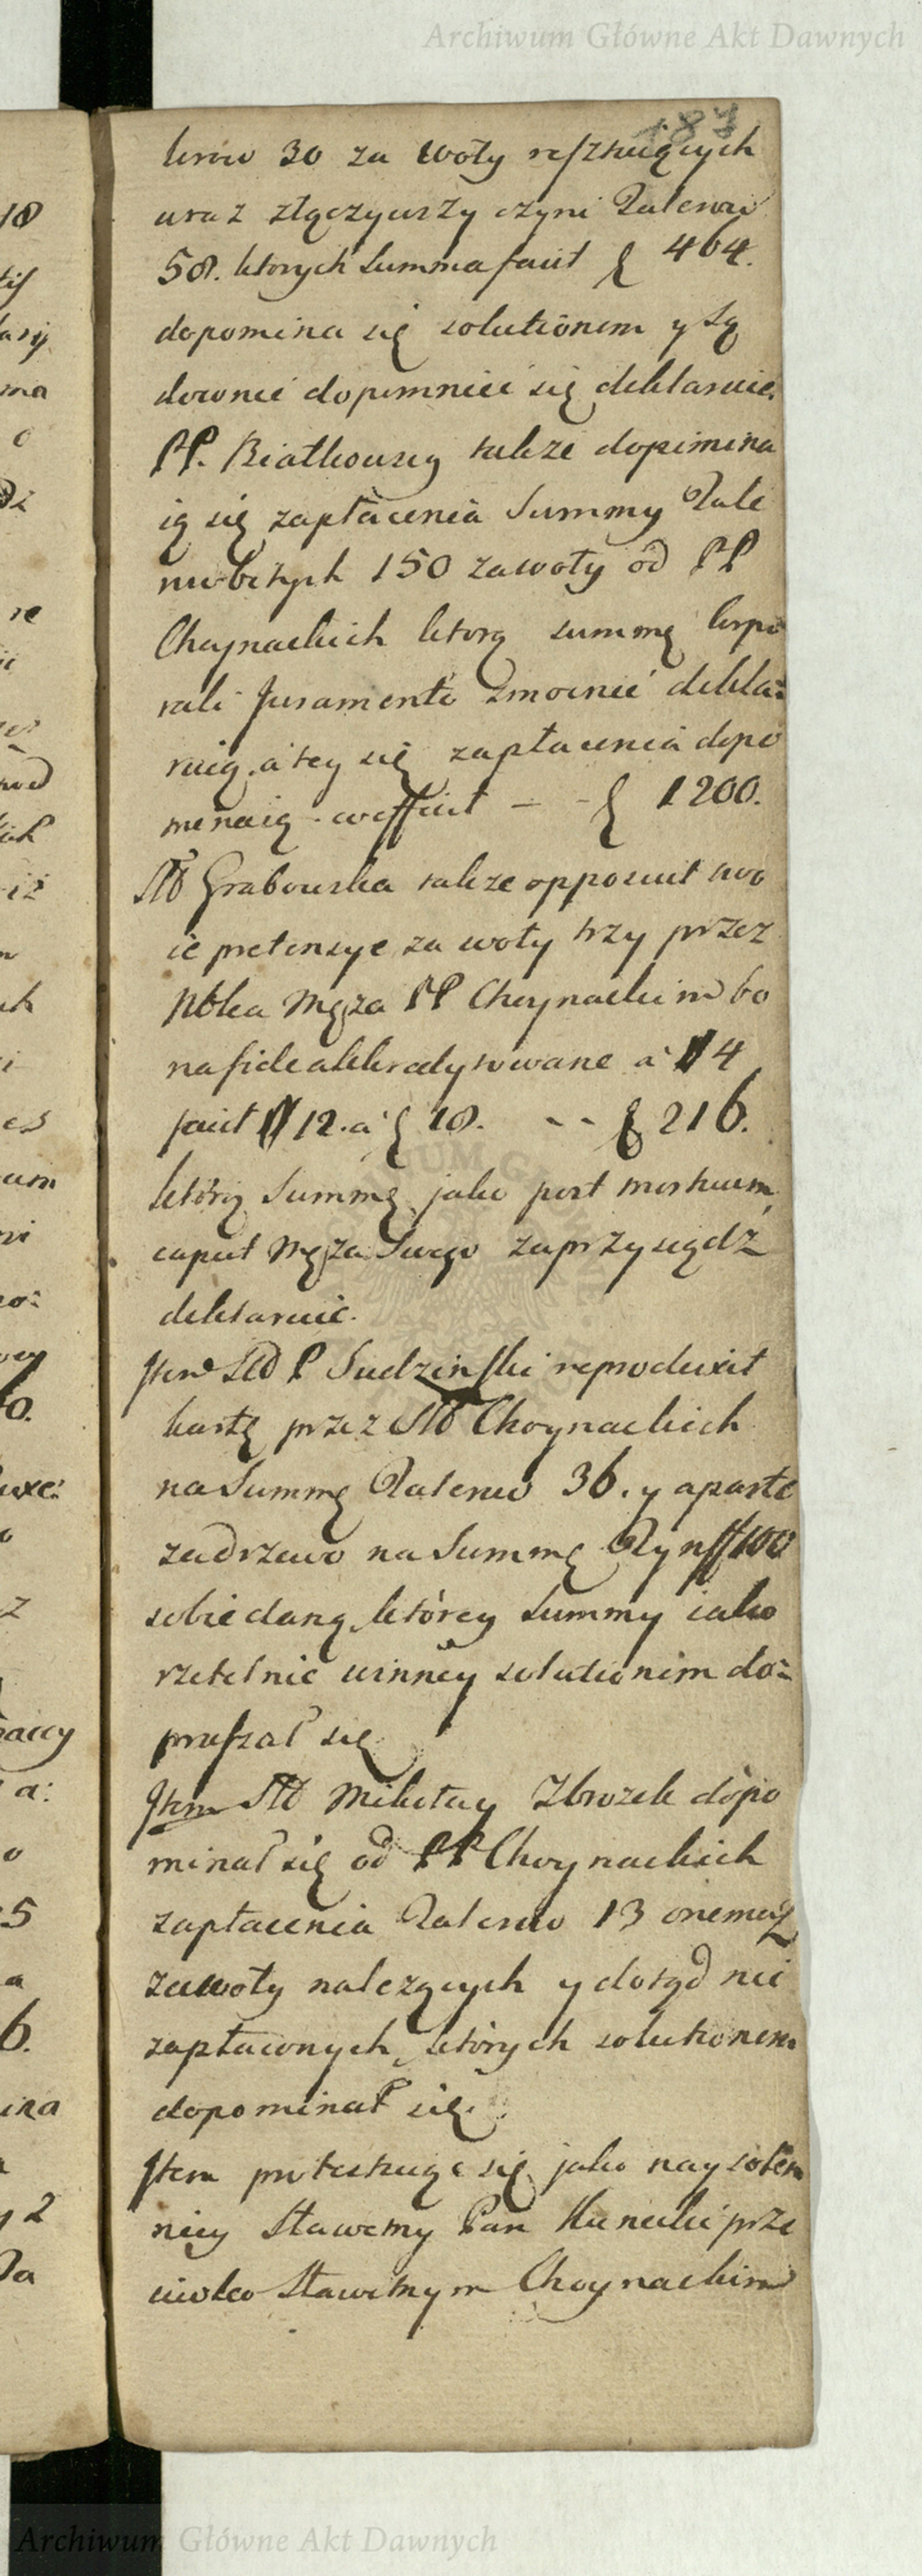 Archiwum Główne Akt Dawnych
187
lerow 30 za woły resztuiących
wraz złączywszy czyni Talerow
58. ktorych Summa facit f 464.
dopomina się solutionem y Są
downie dopomniec się deklaruie.
PP. Białkowscy takze dopimina
ią się zapłacenia Summy Tale
row bitych 150 za woły od PP
Choynackich ktorą summę korpo
rali Juramento zmocnić dekla:
ruią. a tey się zapłacenia dopo
menaią. - f 1200.
Sło Grabowska takze opposuit swo
ie pretensye za woły trzy przez
Nbła Męza PP Choynackim bo
na fide akkredytowane a 4
facit 12. a f 18. - - f 216.
którą Summę jako post mortuum
caput Męza Swego zaprzysiądz
deklaruie.
Item Sło P Sudzinski reproduxit
kartę przez Sło Choynackich
na Summę Talerow 36. y aparte
za drzewo na Summę Ryn 100
sobie daną, którey Summy iako
rzetelnie winney solutionem do:
praszał się
Item Sło Mikołay Zbrozek dopo
minał się od PP Choynackich
zapłacenia Talerow 13 onemuz
za woły nalezących y dotąd nie
zapłaconych, których solutionem
dopominał się.
Item protestuge się jako naysolen
niey Sławetny Pan Kunecki prze
ciwko Sławetnym Choynackim
18
ma
re
na
ch
um
5
6.
ina
y 2
Da
Archiwum Główne Akt Dawnych